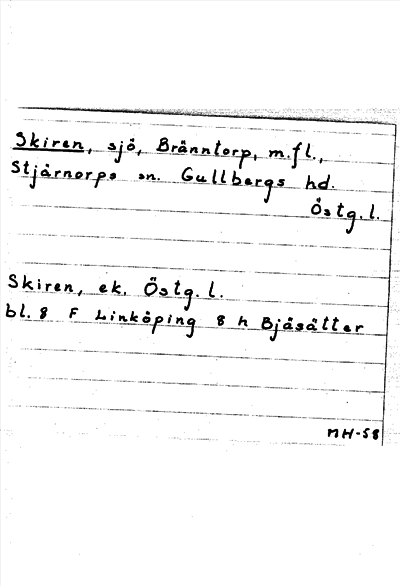 Skiren, sjö, Bränntorp, m.fl.,
Stjärnorps sn. Gullbergs hd.
Östg.l.
Skiren, ek. Östg.l.
bl. 8 F Linköping 8 h Bjäsätter
MH-58